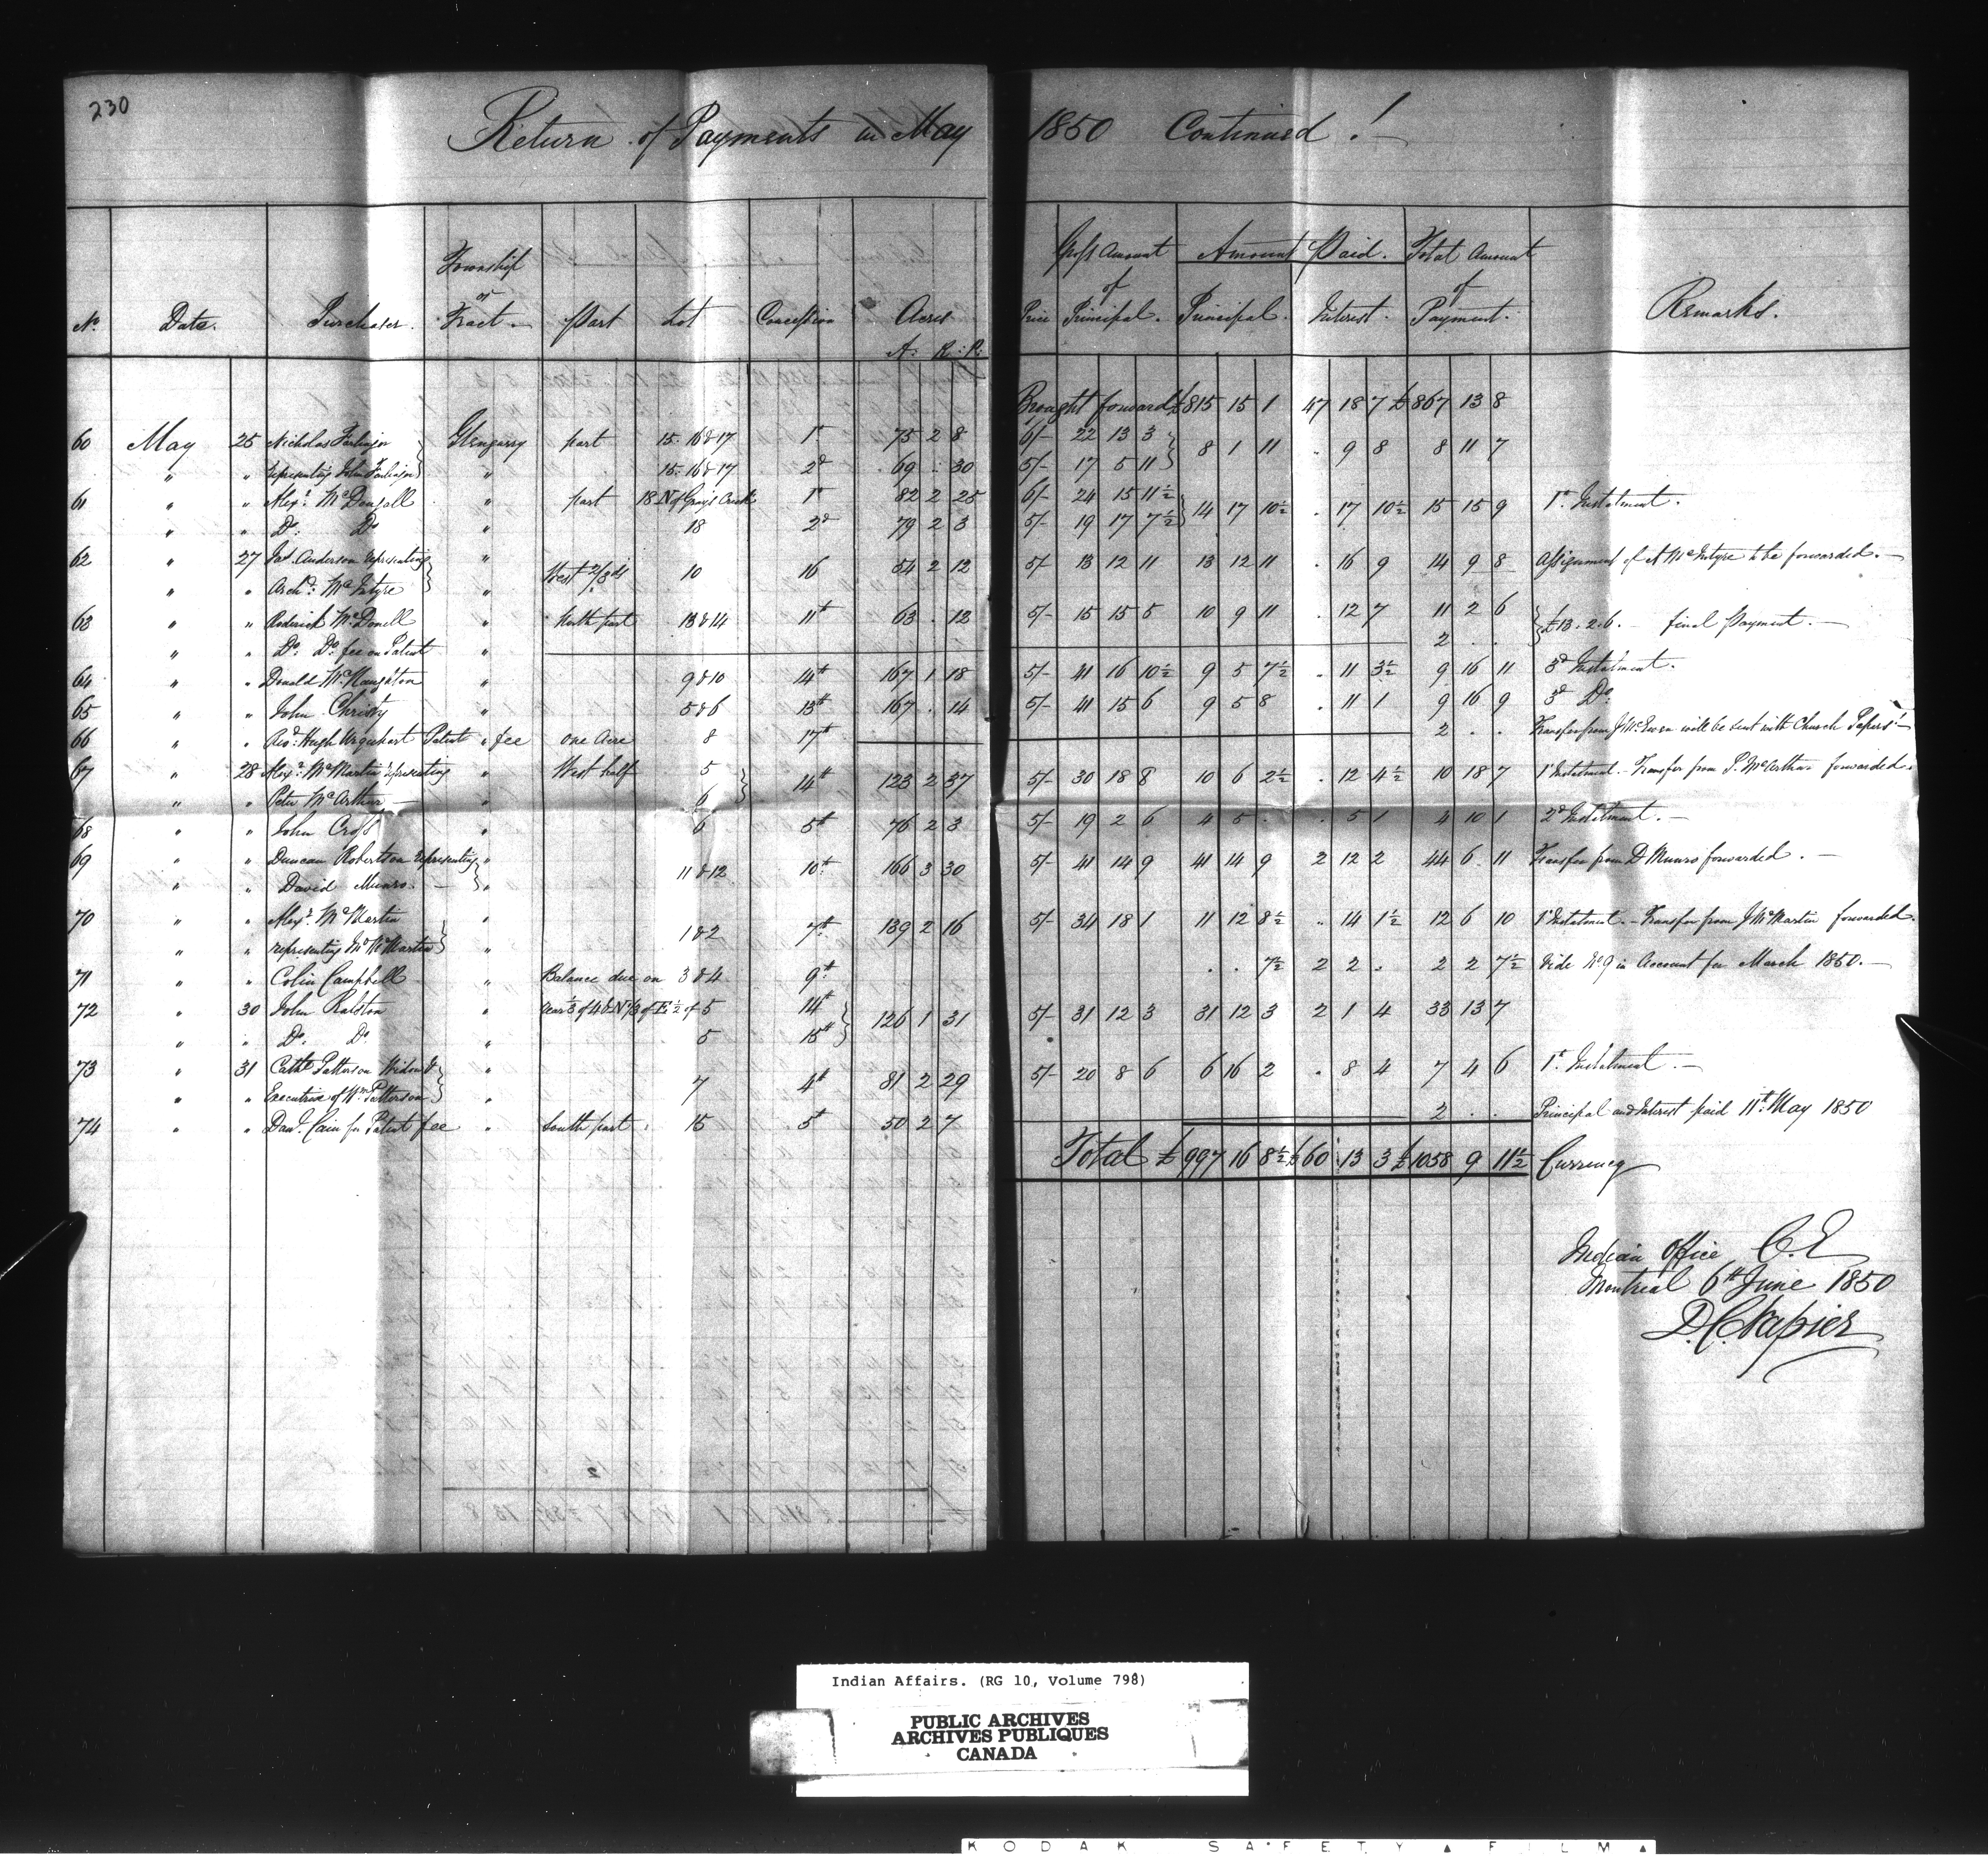 230
Return of Payments in May 1850 Continued !
No. Date. Purchaser. Township or Tract. Part Lot Concession Acres A: R: P: Price Gross Amount of Principal. Amount Paid. Principal. Interest. Total Amount of Payment. Remarks.
Brought forward £815 15 1 47 18 7 £867 13 8
60 May 25 Nicholas Glengarry part 15. 16 & 17 1st 75 2 8 6/- 22 13 3 } 8 1 11 . 9 8 8 11 7
" " representing John } " 15. 16 & 17 2d 69 .. 30 5/- 17 5 11 }
61 " " Alexr. McDougall " part 18 N of Grays Creek 1st 82 2 25 6/- 24 15 11½ } 14 17 10½ . 17 10½ 15 15 9 1st Instalment.
" " Do. Do " 18 2d 79 2 3 5/- 19 17 7½ }
62 " 27 Jas. Anderson representing } " West 2/3ds 10 16 54 2 12 5/- 13 12 11 13 12 11 . 16 9 14 9 8 Assignment of A McIntyre to be forwarded. —
" " Archd: McIntyre } "
63 " " Roderick McDonell " North part 13 & 14 11th 63 . 12 5/- 15 15 5 10 9 11 . 12 7 11 2 6 } £13. 2. 6. — final Payment. —
" " Do: Do: fee on Patent " 2 . .
64 " " Donald McNaughton " 9 & 10 14th 167 1 18 5/- 41 16 10½ 9 5 7½ . 11 3½ 9 16 11 3d Instalment.
65 " " John Christy " 5 & 6 13th 167 . 14 5/- 41 15 6 9 5 8 . 11 1 9 16 9 3d Do.
66 " " Revd. Hugh Urquehart Patent " fee one Acre 8 17th 2 . . Transfer from J McEwen will be sent with Church Papers! —
67 " 28 Alexr. McMartin representing " West half 5 } 14th 123 2 37 5/- 30 18 8 10 6 2½ . 12 4½ 10 18 7 1st Instalment. — Transfer from P. McArthur forwarded.
" " Peter McArthur — " 6 }
68 " " John Cross " 6 5th 76 2 3 5/- 19 2 6 4 5 . . 5 1 4 10 1 2d Instalment. —
69 " " Duncan Robertson representing } " 11 & 12 10th 166 3 30 5/- 41 14 9 41 14 9 2 12 2 44 6 11 Transfer from D Munro forwarded. —
" " David Munro. — } "
70 " " Alexr. McMartin } " 1 & 2 7th 139 2 16 5/- 34 18 1 11 12 8½ .. 14 1½ 12 6 10 1st Instalment. — Transfer from J McMartin forwarded.
" " representing McMartin } "
71 " " Colin Campbell " Balance due on 3 & 4 9th . . 7½ 2 2 . 2 2 7½ Vide No. 9 in Account for March 1850. —
72 " 30 John Ralston " rear ⅓ of 4 & N ⅓ of E ½ of 5 14th } 126 1 31 5/- 31 12 3 31 12 3 2 1 4 33 13 7
" " Do. Do " 5 15th }
73 " 31 Cathe Patterson Widow & } " 7 4th 81 2 29 5/- 20 8 6 6 16 2 . 8 4 7 4 6 1st Instalment. —
" " Executrix of Wm Patterson } "
74 " " Danl. Cain for Patent fee " South part 15 5th 50 2 7 2 . . Principal and Interest paid 11th May 1850
Total £997 16 8½ £60 13 3 £1058 9 11½ Currency
Indian Office C.E
Montreal 6th June 1850
D.C. Napier
Indian Affairs. (RG 10, Volume 798)
PUBLIC ARCHIVES
ARCHIVES PUBLIQUES
CANADA
KODAK SAFETY FILM